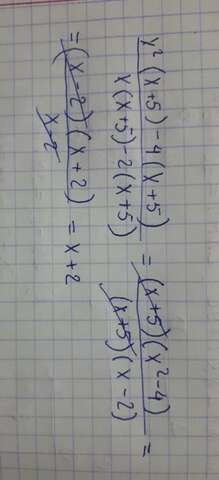 x²(x+5)-4(x+5) / x(x+5)-2(x+5) = (x+5)(x²-4) / (x+5)(x-2) =
= (x-2)(x+2) / x-2 = x+2